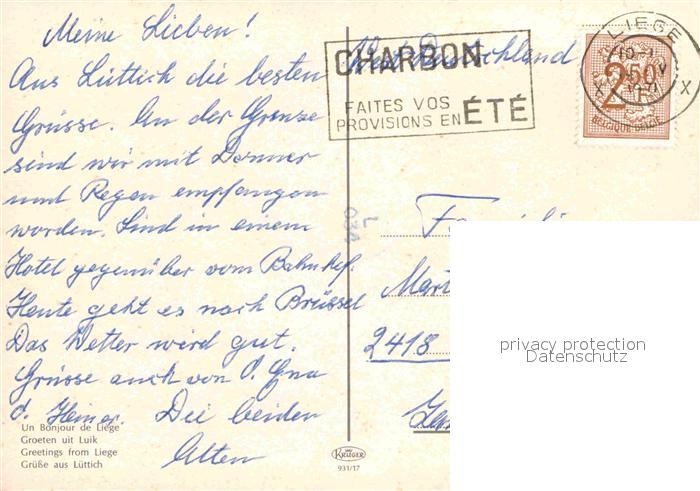 Meine Lieben!
Aus Lüttich die besten
Grüsse. An der Grenze
sind wir mit Donner
und Regen empfangen
worden. Sind in einem
Hotel gegenüber vom Bahnhof.
Heute geht es nach Brüssel
Das Wetter wird gut.
Grüsse auch von
Heiner. Die beiden
Alten
Un Bonjour de Liège
Groeten uit Luik
Greetings from Liege
Grüße aus Lüttich
CHARBON
FAITES VOS
PROVISIONS EN ÉTÉ
LIEGE
X X
2F50
BELGIQUE-BELGIE
L
038
2418
KRÜGER
931/17
privacy protection
Datenschutz